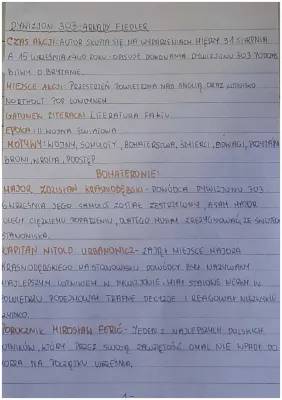 DYWIZJON 303 - ARKADY FIEDLER
- CZAS AKCJI: AUTOR SKUPIA SIĘ NA WYDARZENIACH MIĘDZY 31 SIERPNIA
A 15 WRZEŚNIA 1940 ROKU - OPISUJE DOKONANIA DYWIZJONU 303 PODCZAS
BITWY O BRYTANIĘ.
- MIEJSCE AKCJI: PRZESTRZEŃ POWIETRZNA NAD ANGLIĄ ORAZ LOTNISKO
NORTHOLT POD LONDYNEM
GATUNEK LITERACKI: LITERATURA FAKTU
EPOKA: II WOJNA ŚWIATOWA
- MOTYWY: WOJNY, SAMOLOTY, BOHATERSTWA, ŚMIERCI, ODWAGI, PRZYJAŹNI
BRONI, WROGA, PODSTĘP
BOHATEROWIE:
MAJOR ZDZISŁAW KRASNODĘBSKI - DOWÓDCA DYWIZJONU 303
6 WRZEŚNIA JEGO SAMOLOT ZOSTAŁ ZESTRZELONY, A SAM MAJOR
ULEGŁ CIĘŻKIEMU POPARZENIU, DLATEGO MUSIAŁ ZREZYGNOWAĆ ZE SWOJEGO
STANOWISKA.
KAPITAN WITOLD URBANOWICZ - ZAJĄŁ MIEJSCE MAJORA
KRASNODĘBSKIEGO NA STANOWISKU DOWÓDCY. BYŁ NAZYWANY
NAJLEPSZYM LOTNIKIEM W DYWIZJONIE. MIAŁ STALOWE NERWY. W
POWIETRZU PODEJMOWAŁ TRAFNE DECYZJE I REAGOWAŁ NIEZWYKLE
SZYBKO.
PORUCZNIK MIROSŁAW FERIĆ - JEDEN Z NAJLEPSZYCH POLSKICH
LOTNIKÓW, KTÓRY PRZEZ SWOJĄ ZAWZIĘTOŚĆ OMAL NIE WPADŁ DO
MORZA NA POCZĄTKU WRZEŚNIA.
- 1 -